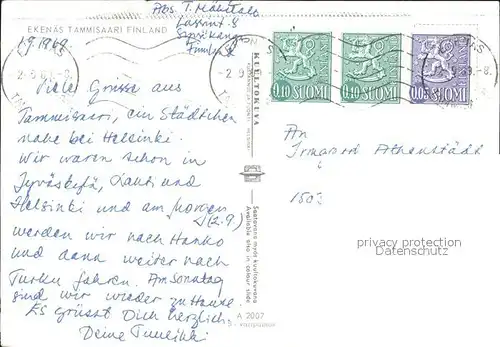 EKENÄS TAMMISAARI FINLAND
Abs. T.
1.9.1969
Viele Grüsse aus
Tammisaari, ein Städtchen
nahe bei Helsinki.
Wir waren schon in
Jyväskylä, Lahti und
Helsinki und am Morgen
(2.9)
werden wir nach Hanko
und dann weiter nach
Turku fahren. Am Sonntag
sind wir wieder zu Hause.
Es grüsst Dich herzlich,
Deine Tuulikki
KULTOKUVA
Saatavana myös kuultokuvana
Available also in colour slide
A 2007
2.9.69-8
0.10 SUOMI
0.10 SUOMI
0.05 SUOMI
An
Irmgard Athenstädt
1503
privacy protection
oldthing.de